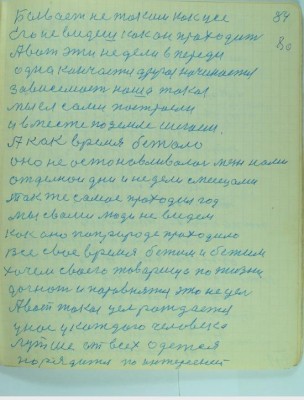 Бывает не таким как все 84
Его не видем как он проходит 80
А вот эти недели впереди
одна кончается другая начинается
Зависемость наша такая
мы сами построели
и вместе по земле шагаем.
А как время бежало
оно не остоновливалось меж нами
отделной дни и недели смесецами
Так же самое проходил год
мы сваими людь не видем
как оно по природе проходило
Все свое время бежим и бежим
хочем своего товарища по жизни
догнат и поровнятся
А вот такая цел рождается
у нас у каждого человека
Лутше от всех одется
нарядится по интересней